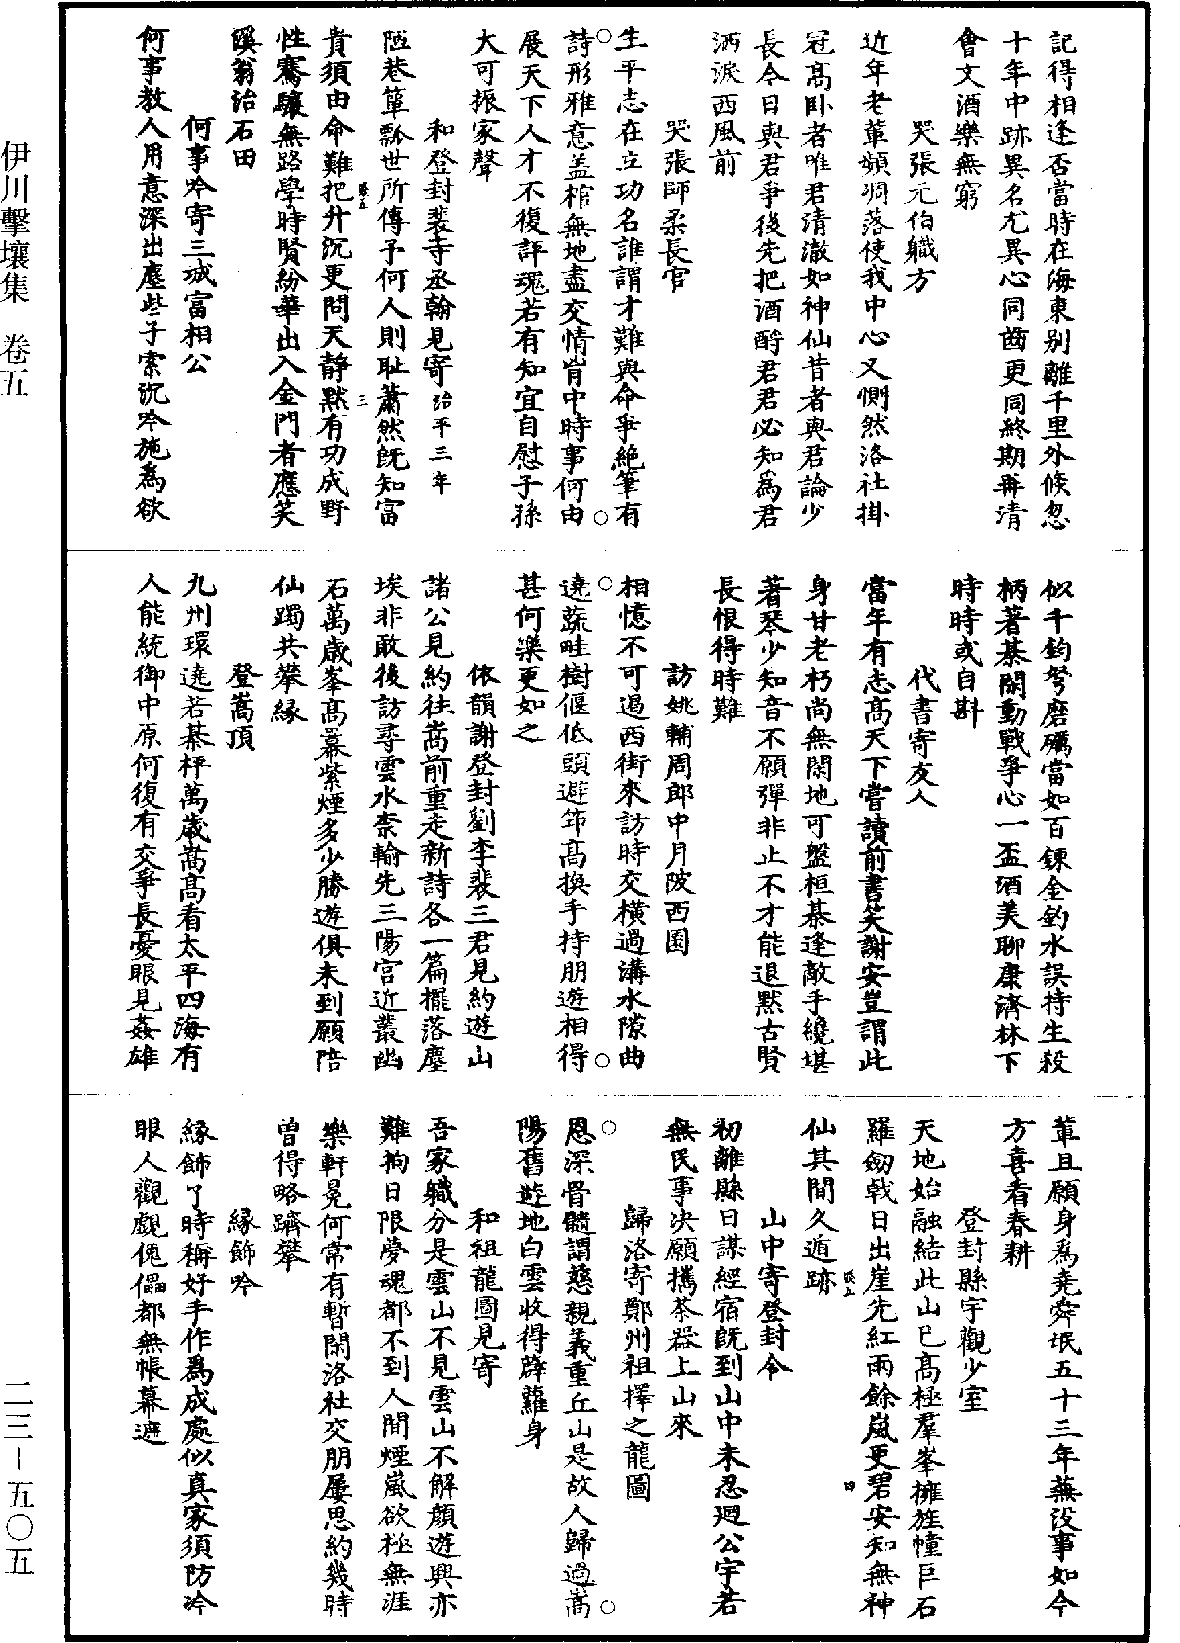 記得相逢否當時在海東別離千里外倏忽
十年中跡異名尤異心同齒更同終期再清
會文酒樂無窮
哭張元伯職方
近年老輩頻凋落使我中心又惻然洛社掛
冠高卧者唯君清澈如神仙昔者與君論少
長今日與君爭後先把酒酹君君必知爲君
洒淚西風前
哭張師柔長官
生平志在立功名誰謂才難與命爭絶筆有
詩形雅意盖棺無地盡交情胷中時事何由
展天下人才不復評魂若有知宜自慰子孫
大可振家聲
和登封裴寺丞翰見寄 治平三年
陋巷簞瓢世所傳予何人則耻蕭然旣知富
貴須由命難把升沉更問天靜默有功成野
性騫驤無路學時賢紛華出入金門者應笑
溪翁治石田
何事吟寄三城富相公
何事教人用意深出塵些子索沉吟施爲欲
似千鈞弩磨礪當如百鍊金釣水誤持生殺
柄著碁閑動戰爭心一盃酒美聊康濟林下
時時或自斟
代書寄友人
當年有志高天下嘗讀前書笑謝安豈謂此
身甘老朽尚無閑地可盤桓碁逢敵手纔堪
著琴少知音不願彈非止不才能退默古賢
長恨得時難
訪姚輔周郎中月陂西園
相憶不可遏西街來訪時交橫過溝水隙曲
遶蔬畦樹偃低頭避笻高換手持朋遊相得
甚何樂更如之
依韻謝登封劉李裴三君見約遊山
諸公見約往嵩前重走新詩各一篇擺落塵
埃非敢後訪尋雲水柰輸先三陽宮近叢幽
石萬歲峯高羃紫煙多少勝遊俱未到願陪
仙躅共攀緣
登嵩頂
九州環遶若碁枰萬歲嵩高看太平四海有
人能統御中原何復有交爭長憂眼見姦雄
輩且願身爲堯舜氓五十三年蕪沒事如今
方喜看春耕
登封縣宇觀少室
天地始融結此山已高極羣峯擁旌幢巨石
羅劒戟日出崖先紅雨餘嵐更碧安知無神
仙其間久遁跡
山中寄登封令
初離縣日謀經宿旣到山中未忍迴公宇若
無民事决願攜茶器上山來
歸洛寄鄭州祖擇之龍圖
恩深骨髓謂慈親義重丘山是故人歸過嵩
陽舊遊地白雲收得薜蘿身
和祖龍圖見寄
吾家職分是雲山不見雲山不解顏遊興亦
難拘日限夢魂都不到人間煙嵐欲極無涯
樂軒冕何常有暫閑洛社交朋屢思約幾時
曾得略躋攀
緣飾吟
緣飾了時稱好手作爲成處似真家須防冷
眼人觀覷傀儡都無帳幕遮
伊川擊壤集 卷五
二三－五〇五